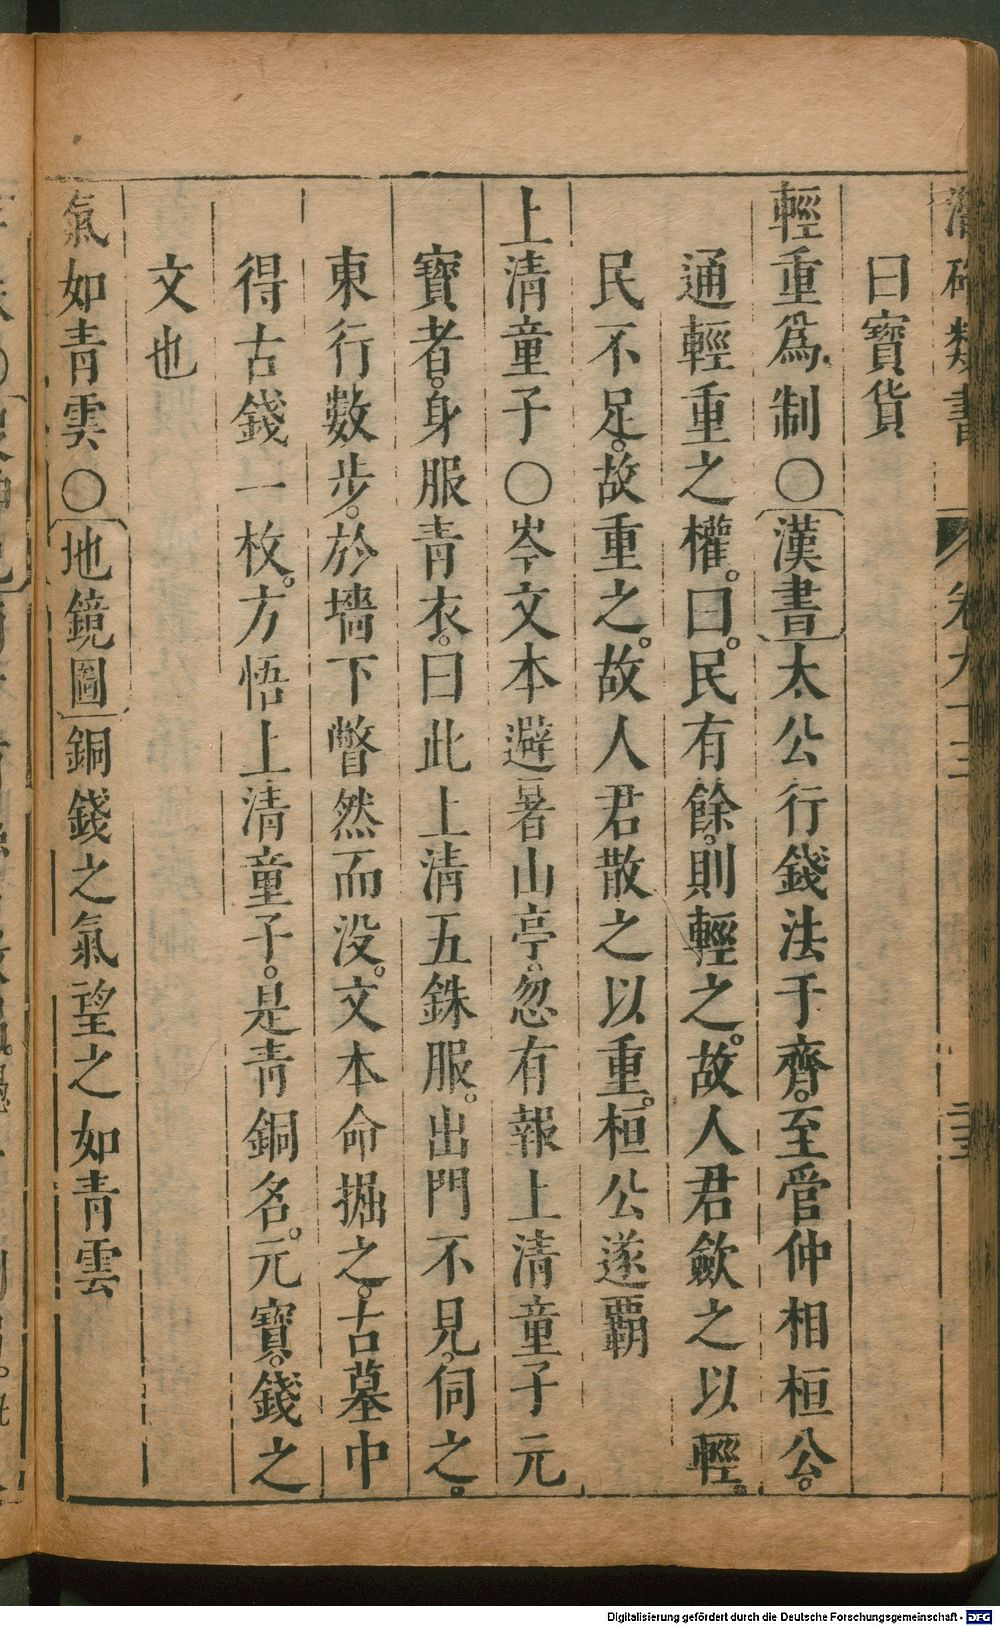 潛確類書 卷九十三
曰寶貨
輕重爲制○〔漢書〕太公行錢法于齊。至管仲相桓公。
通輕重之權。曰。民有餘。則輕之。故人君歛之以輕。
民不足。故重之。故人君散之以重。桓公遂覇
上清童子○岑文本避暑山亭。忽有報上清童子元
寶者。身服青衣。曰此上清五銖服。出門不見。伺之。
東行數步。於墻下瞥然而没。文本命掘之。古墓中
得古錢一枚。方悟上清童子。是青銅名。元寶。錢之
文也
氣如青雲○〔地鏡圖〕銅錢之氣望之如青雲
Digitalisierung gefördert durch die Deutsche Forschungsgemeinschaft - DFG